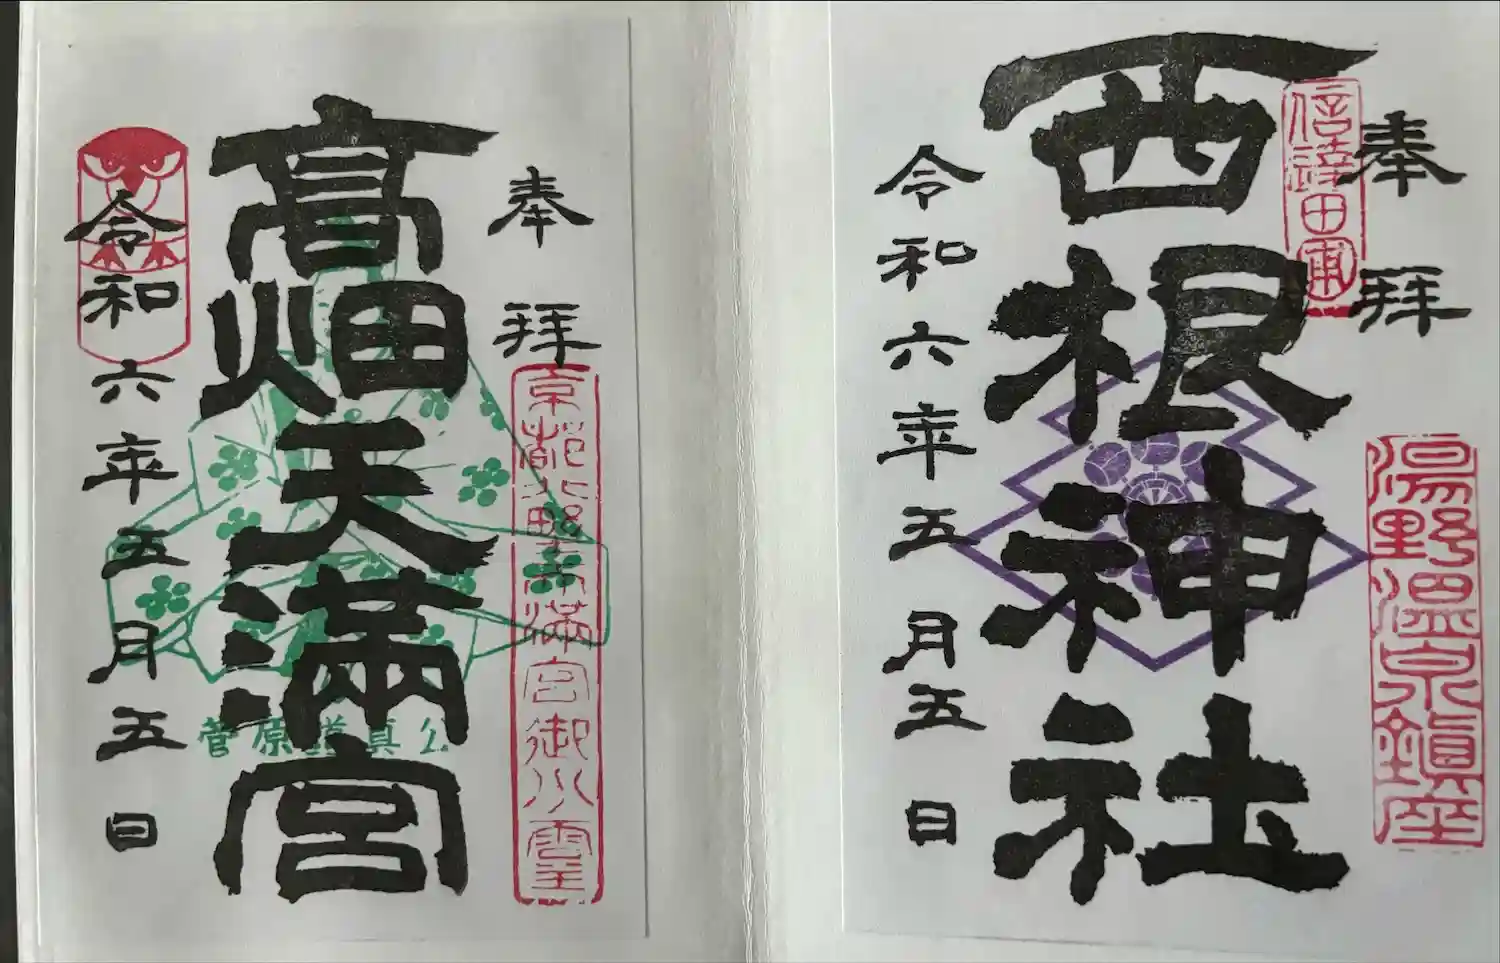 奉拝
湯野温泉鎮座
西根神社
令和六年五月五日
奉拝
京都北野天満宮御分霊
高畑天満宮
菅原道真公
令和六年五月五日